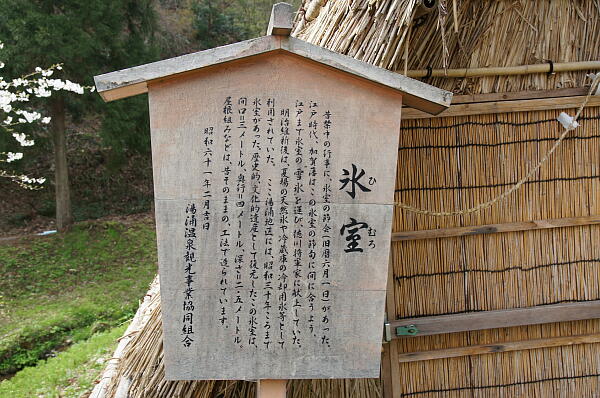 氷室
ひ
むろ
昔禁中の行事に、氷室の節会(旧暦六月一日)があった。
江戸時代、加賀藩はこの氷室の節句に間に合うよう、
江戸まで氷室の"雪氷"を運び、徳川将軍家に献上していた。
明治維新後は、夏場の天然氷や冷蔵庫の冷却用氷等として
利用されていた。ここ湯涌地区には、昭和三十年ごろまで
氷室があった。歴史的、文化的遺産として復元したこの氷室は、
間口=三メートル、奥行=四メートル、深さ=二・五メートル。
屋根組みなどは、昔そのままの工法で造られています。
昭和六十一年二月吉日
湯涌温泉観光事業協同組合